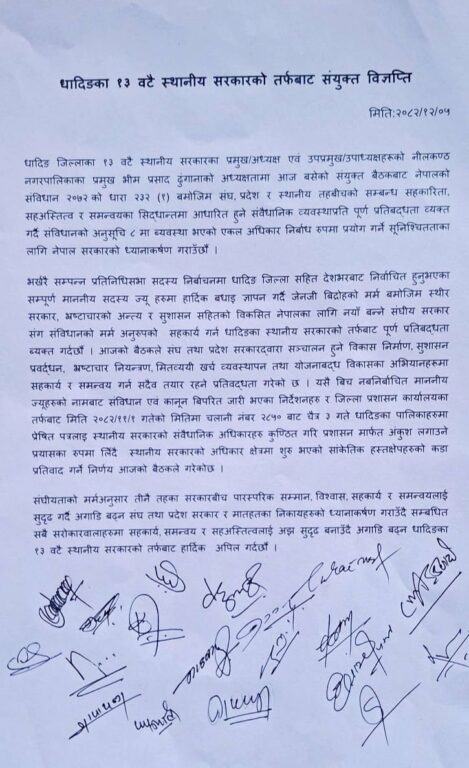 धादिङका १३ वटै स्थानीय सरकारको तर्फबाट संयुक्त विज्ञप्ति
मिति:२०८२/१२/०५
धादिङ जिल्लाका १३ वटै स्थानीय सरकारका प्रमुख/अध्यक्ष एवं उपप्रमुख/उपाध्यक्षहरूको नीलकण्ठ
नगरपालिकाका प्रमुख भीम प्रसाद ढुंगानाको अध्यक्षतामा आज बसेको संयुक्त बैठकबाट नेपालको
संविधान २०७२ को धारा २३२ (१) बमोजिम संघ, प्रदेश र स्थानीय तहबीचको सम्बन्ध सहकारिता,
सहअस्तित्व र समन्वयका सिद्धान्तमा आधारित हुने संवैधानिक व्यवस्थाप्रति पूर्ण प्रतिबद्धता व्यक्त
गर्दै संविधानको अनुसूचि ८ मा ब्यवस्था भएको एकल अधिकार निर्बाध रुपमा प्रयोग गर्ने सूनिश्चितताका
लागि नेपाल सरकारको ध्यानाकर्षण गराउँछौं ।
भर्खरै सम्पन्न प्रतिनिधिसभा सदस्य निर्वाचनमा धादिङ जिल्ला सहित देशभरबाट निर्वाचित हुनुभएका
सम्पूर्ण माननीय सदस्य ज्यू हरुमा हार्दिक बधाइ ज्ञापन गर्दै जेनजी बिद्रोहको मर्म बमोजिम स्थीर
सरकार, भ्रष्टाचारको अन्त्य र सुशासन सहितको विकसित नेपालका लागि नयाँ बन्ने संघीय सरकार
संग संविधानको मर्म अनुरुपको सहकार्य गर्न धादिङका स्थानीय सरकारको तर्फबाट पूर्ण प्रतिबद्धता
ब्यक्त गर्दछौं । आजको बैठकले संघ तथा प्रदेश सरकारद्वारा सञ्चालन हुने विकास निर्माण, सुशासन
प्रवर्द्धन, भ्रष्टाचार नियन्त्रण, मितव्ययी खर्च व्यवस्थापन तथा योजनाबद्ध विकासका अभियानहरूमा
सहकार्य र समन्वय गर्न सदैव तयार रहने प्रतिवद्धता गरेको छ । यसै बिच नबनिर्बाचित माननीय
ज्यूहरुको नामबाट संविधान एवं कानून बिपरित जारी भएका निर्देशनहरु र जिल्ला प्रशासन कार्यालयका
तर्फबाट मिति २०८२/११/१ गतेको मितिमा चलानी नंबर २८५० बाट चैत्र ३ गते धादिङका पालिकाहरुमा
प्रेषित पत्रलाइ स्थानीय सरकारको संवैधानिक अधिकारहरु कुण्ठित गरि प्रशासन मार्फत अंकुश लगाउने
प्रयासका रुपमा लिँदै स्थानीय सरकारको अधिकार क्षेत्रमा शुरु भएको सांकेतिक हस्तक्षेपहरुको कडा
प्रतिवाद गर्ने निर्णय आजको बैठकले गरेकोछ ।
संघीयताको मर्मअनुसार तीनै तहका सरकारबीच पारस्परिक सम्मान, विश्वास, सहकार्य र समन्वयलाई
सुदृढ गर्दै अगाडि बढ्न संघ तथा प्रदेश सरकार र मातहतका निकायहरुको ध्यानाकर्षण गराउँदै सम्बन्धित
सबै सरोकारवालाहरूमा सहकार्य, समन्वय र सहअस्तित्वलाई अझ सुदृढ बनाउँदै अगाडि बढ्न धादिङका
१३ वटै स्थानीय सरकारको तर्फबाट हार्दिक अपिल गर्दछौं ।